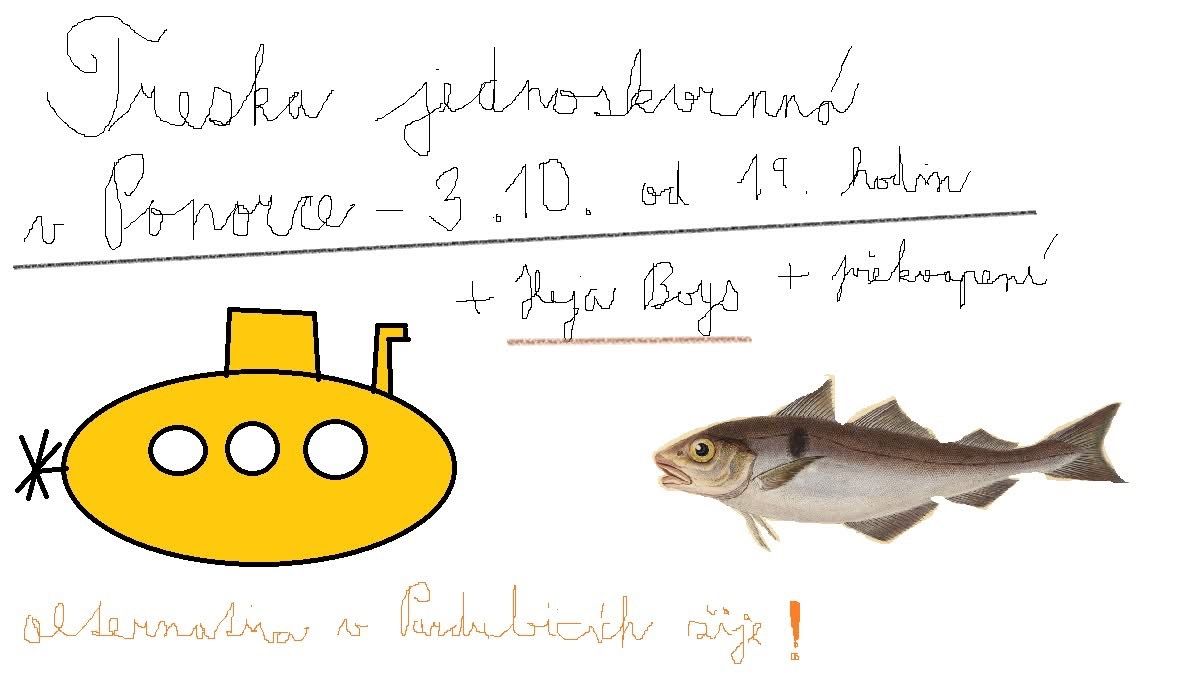 Treska jednoskvrnná
v Ponorce - 3.10. od 19. hodin
+ Heja Boys + překvapení
alternativa v Pardubicích žije!